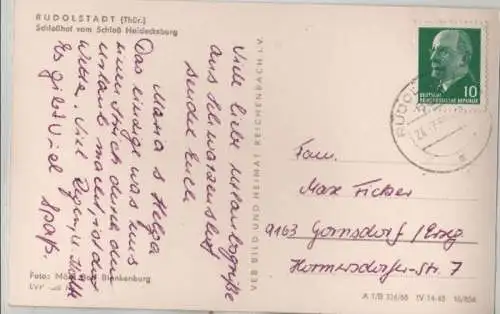 RUDOLSTADT (Thür.)
Schloßhof vom Schloß Heidecksburg
Viele liebe Urlaubsgrüße
aus Schwarzenshof
sendet Euch
Maria + Helga
Das einzige was uns
einen Strich durch den
Urlaub macht, ist das
Wetter. Viel Regen + Kälte
Es gibt viel Spaß.
Foto: Blankenburg
VEB BILD UND HEIMAT REICHENBACH i. V.
10
DEUTSCHE
DEMOKRATISCHE REPUBLIK
RUDOL
Fam.
Max Ficker
9163 Gornsdorf / Erzg.
Hormersdorfer-Str. 7
A 1/B 326/68 IV-14-45 10/80A